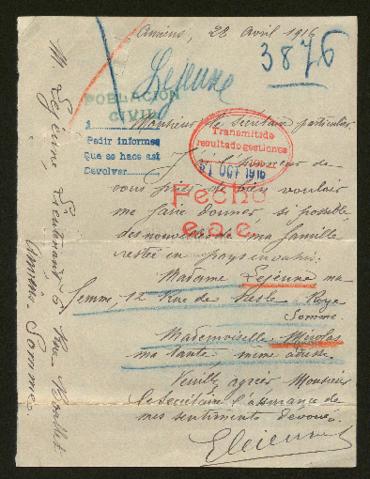 Amiens, 28 Avril 1916
3876
Lejeune
POBLACIÓN
CIVIL
Pedir informes
Que se hace así
Devolver
Monsieur le secrétaire particulier
Transmitido
resultado gestiones
31 OCT 1916
J'ai l'honneur de
vous prier de bien vouloir
me faire donner, si possible
des nouvelles de ma famille
restée en pays envahi.
Fecho
e.a.e.
Madame Lejeune ma
femme, 12 Rue de Nesle Roye
Somme
Mademoiselle Nicolas
ma tante même adresse
Veuillez agréer Monsieur
le secrétaire l'assurance de
mes sentiments dévoués.
M. Lejeune Lieutenant 6 Rue
Amiens Somme